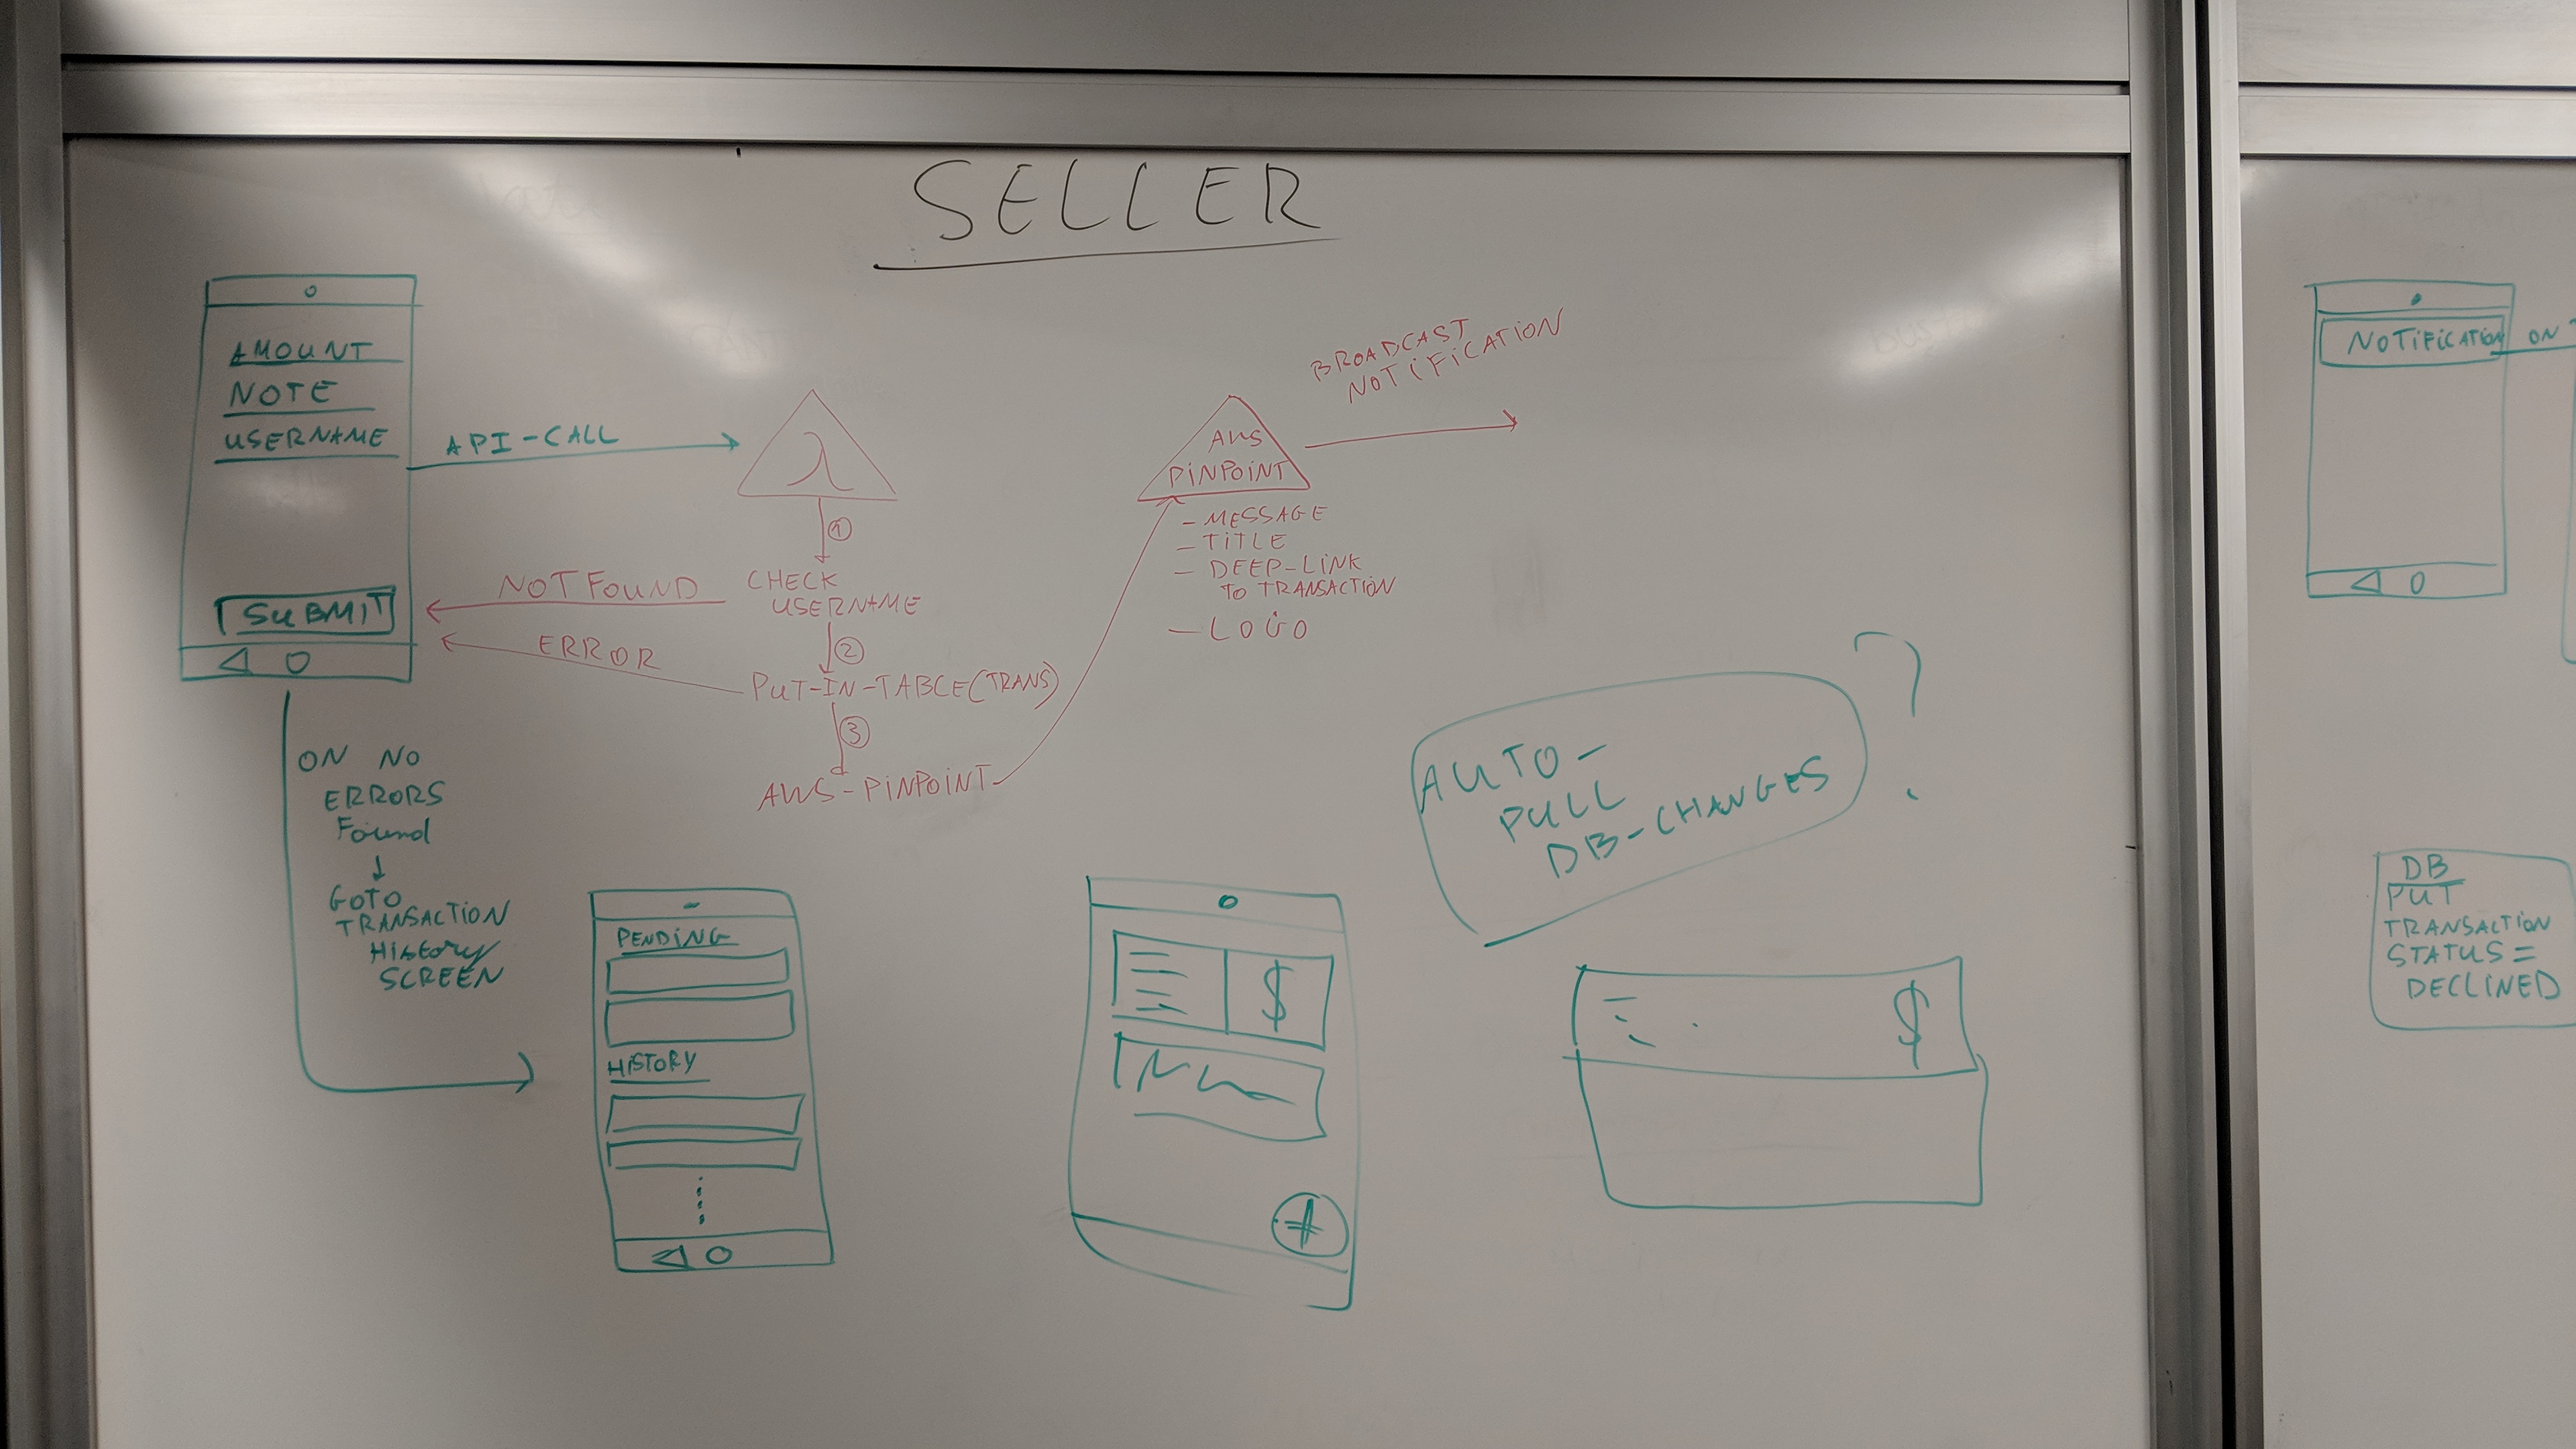 SELLER
AMOUNT
NOTE
USERNAME
SUBMIT
API-CALL
λ
①
CHECK
USERNAME
NOT FOUND
②
ERROR
PUT-IN-TABLE(TRANS)
③
AWS-PINPOINT
AWS
PINPOINT
- MESSAGE
- TITLE
- DEEP-LINK
TO TRANSACTION
- LOGO
BROADCAST
NOTIFICATION
ON NO
ERRORS
Found
GOTO
TRANSACTION
HISTORY
SCREEN
PENDING
HISTORY
$
+
AUTO-
PULL
DB-CHANGES
?
$
NOTIFICATION
ON
DB
PUT
TRANSACTION
STATUS =
DECLINED